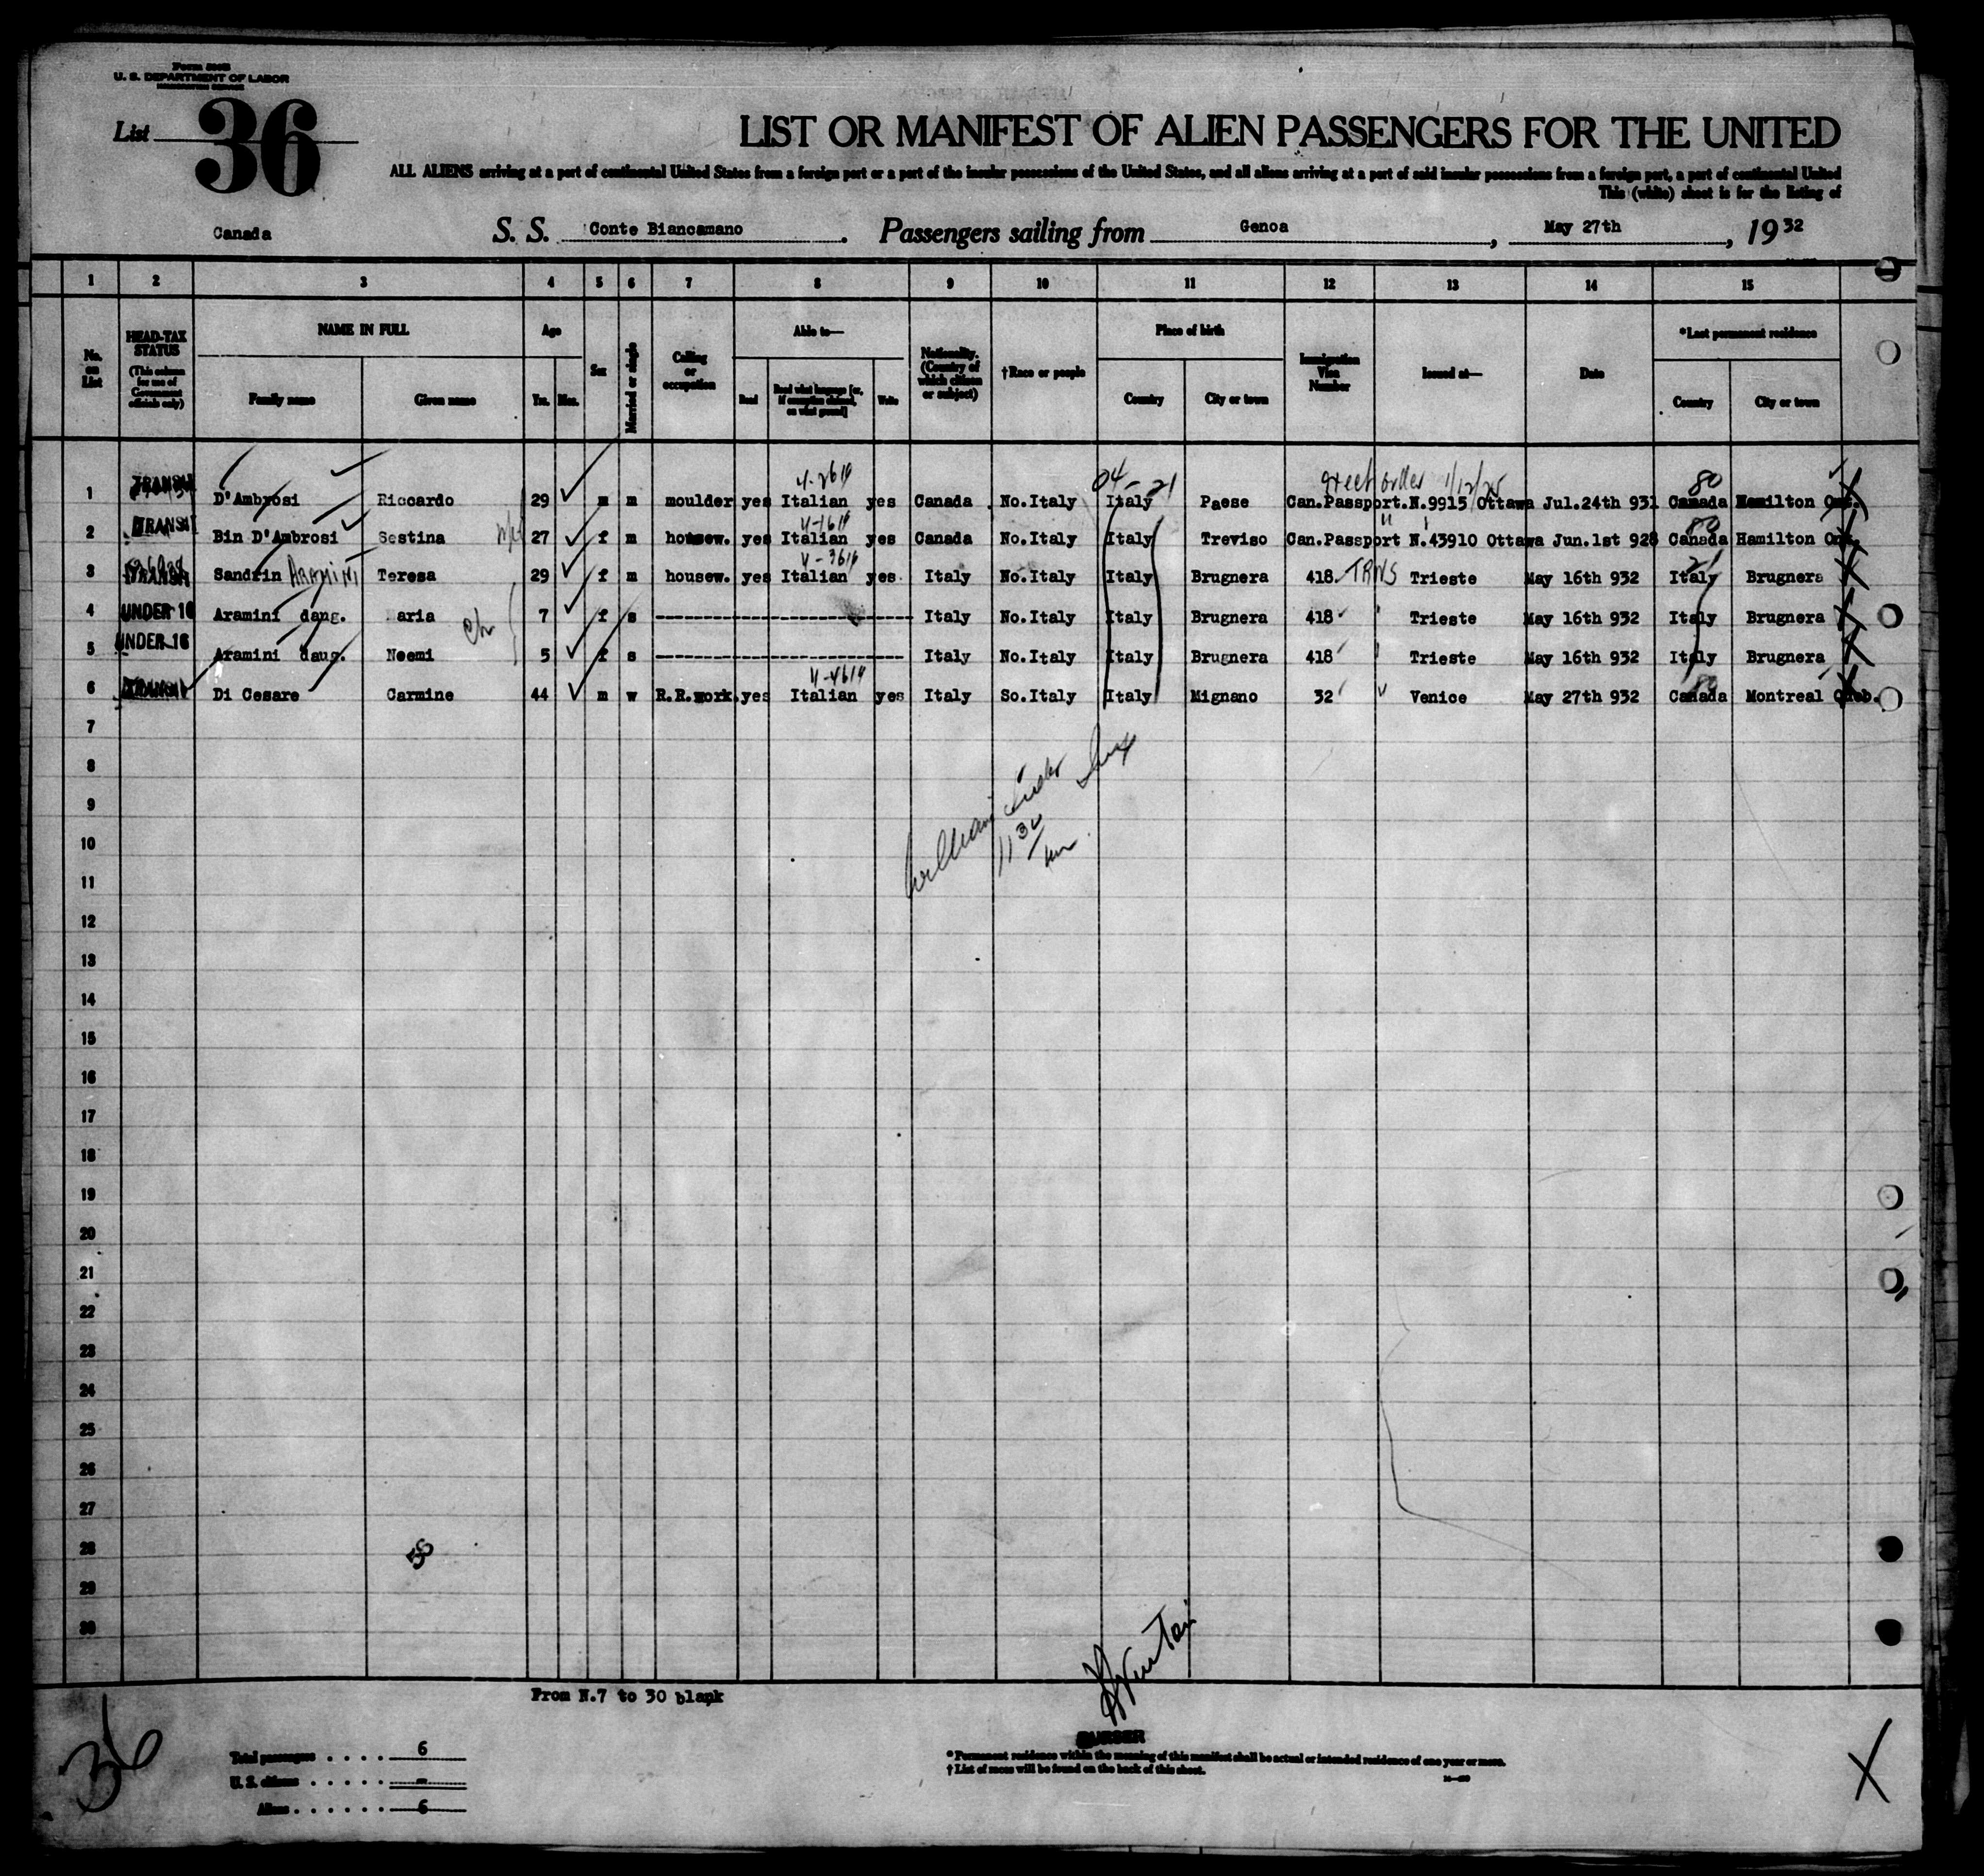 U. S. DEPARTMENT OF LABOR
List 36
LIST OR MANIFEST OF ALIEN PASSENGERS FOR THE UNITED
ALL ALIENS arriving at a port of continental United States from a foreign port or a port of the insular possessions of the United States, and all aliens arriving at a port of said insular possessions from a foreign port, a port of continental United
This (white) sheet is for the listing of
Canada S. S. Conte Biancamano. Passengers sailing from Genoa, May 27th, 1932
1 2 3 4 5 6 7 8 9 10 11 12 13 14 15
No. on List
HEAD-TAX STATUS (This column for use of Government officials only)
NAME IN FULL
Family name Given name
Age
Yrs. Mos.
Sex
Married or single
Calling or occupation
Able to—
Read Read what language [or, if exemption claimed, on what ground] Write
Nationality. (Country of which citizen or subject)
†Race or people
Place of birth
Country City or town
Immigration Visa Number
Issued at—
Date
*Last permanent residence
Country City or town
04-21 80
1 TRANSIT D'Ambrosi Riccardo 29 m m moulder yes Italian yes Canada No.Italy Italy Paese Can.Passport.N.9915 Ottawa Jul.24th 931 Canada Hamilton Ont.
2 TRANSIT Bin D'Ambrosi Sestina 27 f m housew. yes Italian yes Canada No.Italy Italy Treviso Can.Passport N.43910 Ottawa Jun.1st 928 Canada Hamilton Ont.
3 TRANSIT Sandrin ARAMINI Teresa 29 f m housew. yes Italian yes Italy No.Italy Italy Brugnera 418 TRNS Trieste May 16th 932 Italy Brugnera
4 UNDER 16 Aramini daug. aria 7 f s Italy No.Italy Italy Brugnera 418 Trieste May 16th 932 Italy Brugnera
5 UNDER 16 Aramini daug. Noemi 5 f s Italy No.Italy Italy Brugnera 418 Trieste May 16th 932 Italy Brugnera
6 Di Cesare Carmine 44 m w R.R.work. yes Italian yes Italy So.Italy Italy Mignano 32 Venice May 27th 932 Canada Montreal Queb.
7
8
9
10
11
12
13
14
15
16
17
18
19
20
21
22
23
24
25
26
27
28
29
30
From N.7 to 30 blank
36
PURSER
Total passengers . . . . 6
U. S. citizens . . . . . -
Aliens . . . . . . 6
* Permanent residence within the meaning of this manifest shall be actual or intended residence of one year or more.
† List of races will be found on the back of this sheet.